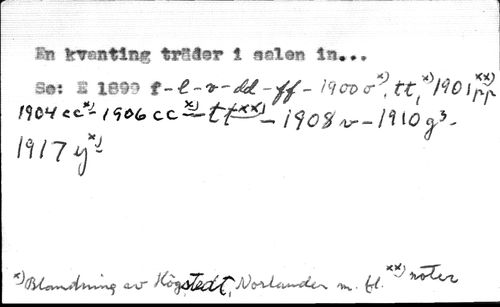 En kvanting träder i salen in...
Se: E 1899 f-l-v-dd-ff-1900 o*), tt,*) 1901 pp**)
1904 cc*)-1906 cc*)-tt**)-1908 v-1910 g³-
1917 y*)-
*) Blandning av Högstedt, Norlander m. fl. **) noter